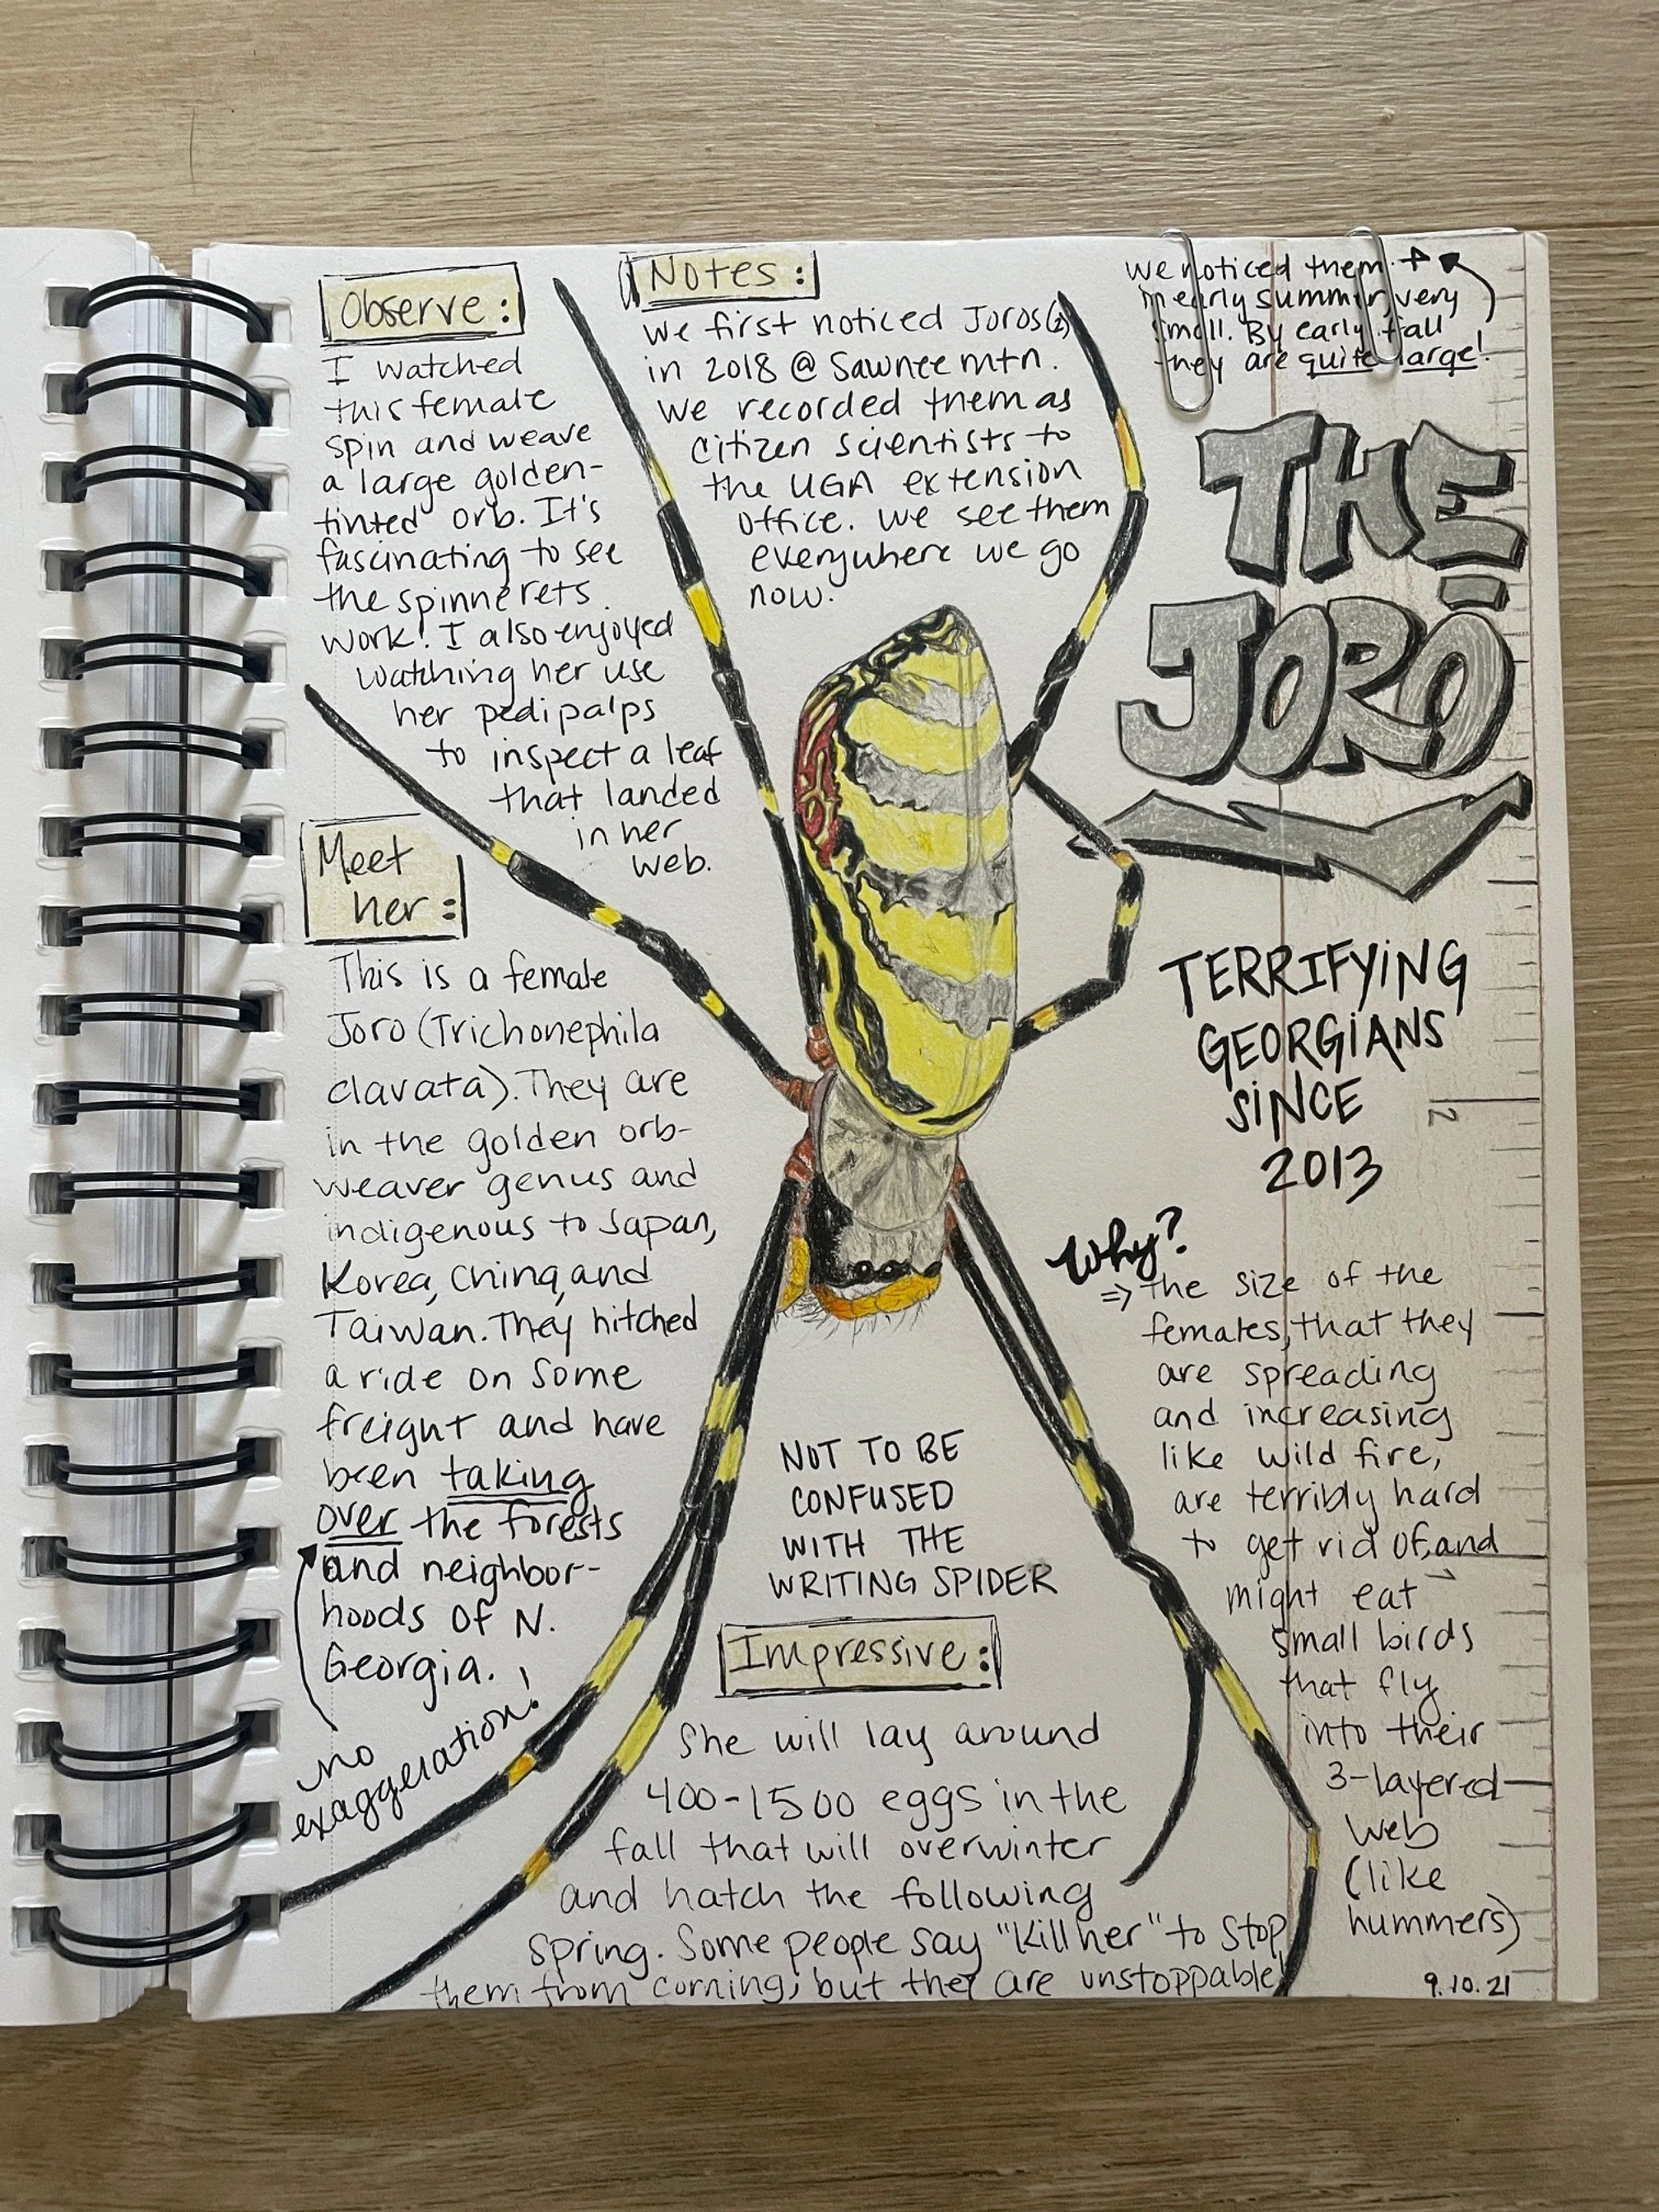 Observe:
I watched
this female
spin and weave
a large golden-
tinted orb. It's
fascinating to see
the spinnerets
work! I also enjoyed
watching her use
her pedipalps
to inspect a leaf
that landed
in her
web.
Notes:
We first noticed Joros(2)
in 2018 @ Sawnee mtn.
We recorded them as
citizen scientists to
the UGA extension
office. We see them
everywhere we go
now.
we noticed them
in early summer, very
small. By early fall
they are quite large!
THE
JORŌ
TERRIFYING
GEORGIANS
SINCE
2013
2
Meet
her:
This is a female
Joro (Trichonephila
clavata). They are
in the golden orb-
weaver genus and
indigenous to Japan,
Korea, China, and
Taiwan. They hitched
a ride on some
freight and have
been taking
over the forests
and neighbor-
hoods of N.
Georgia.
no
exaggeration!
Why?
⇒ the size of the
females, that they
are spreading
and increasing
like wild fire,
are terribly hard
to get rid of, and
might eat
small birds
that fly
into their
3-layered
web
(like
hummers)
NOT TO BE
CONFUSED
WITH THE
WRITING SPIDER
Impressive:
She will lay around
400-1500 eggs in the
fall that will overwinter
and hatch the following
spring. Some people say "Kill her" to stop
them from coming, but they are unstoppable!
9.10.21